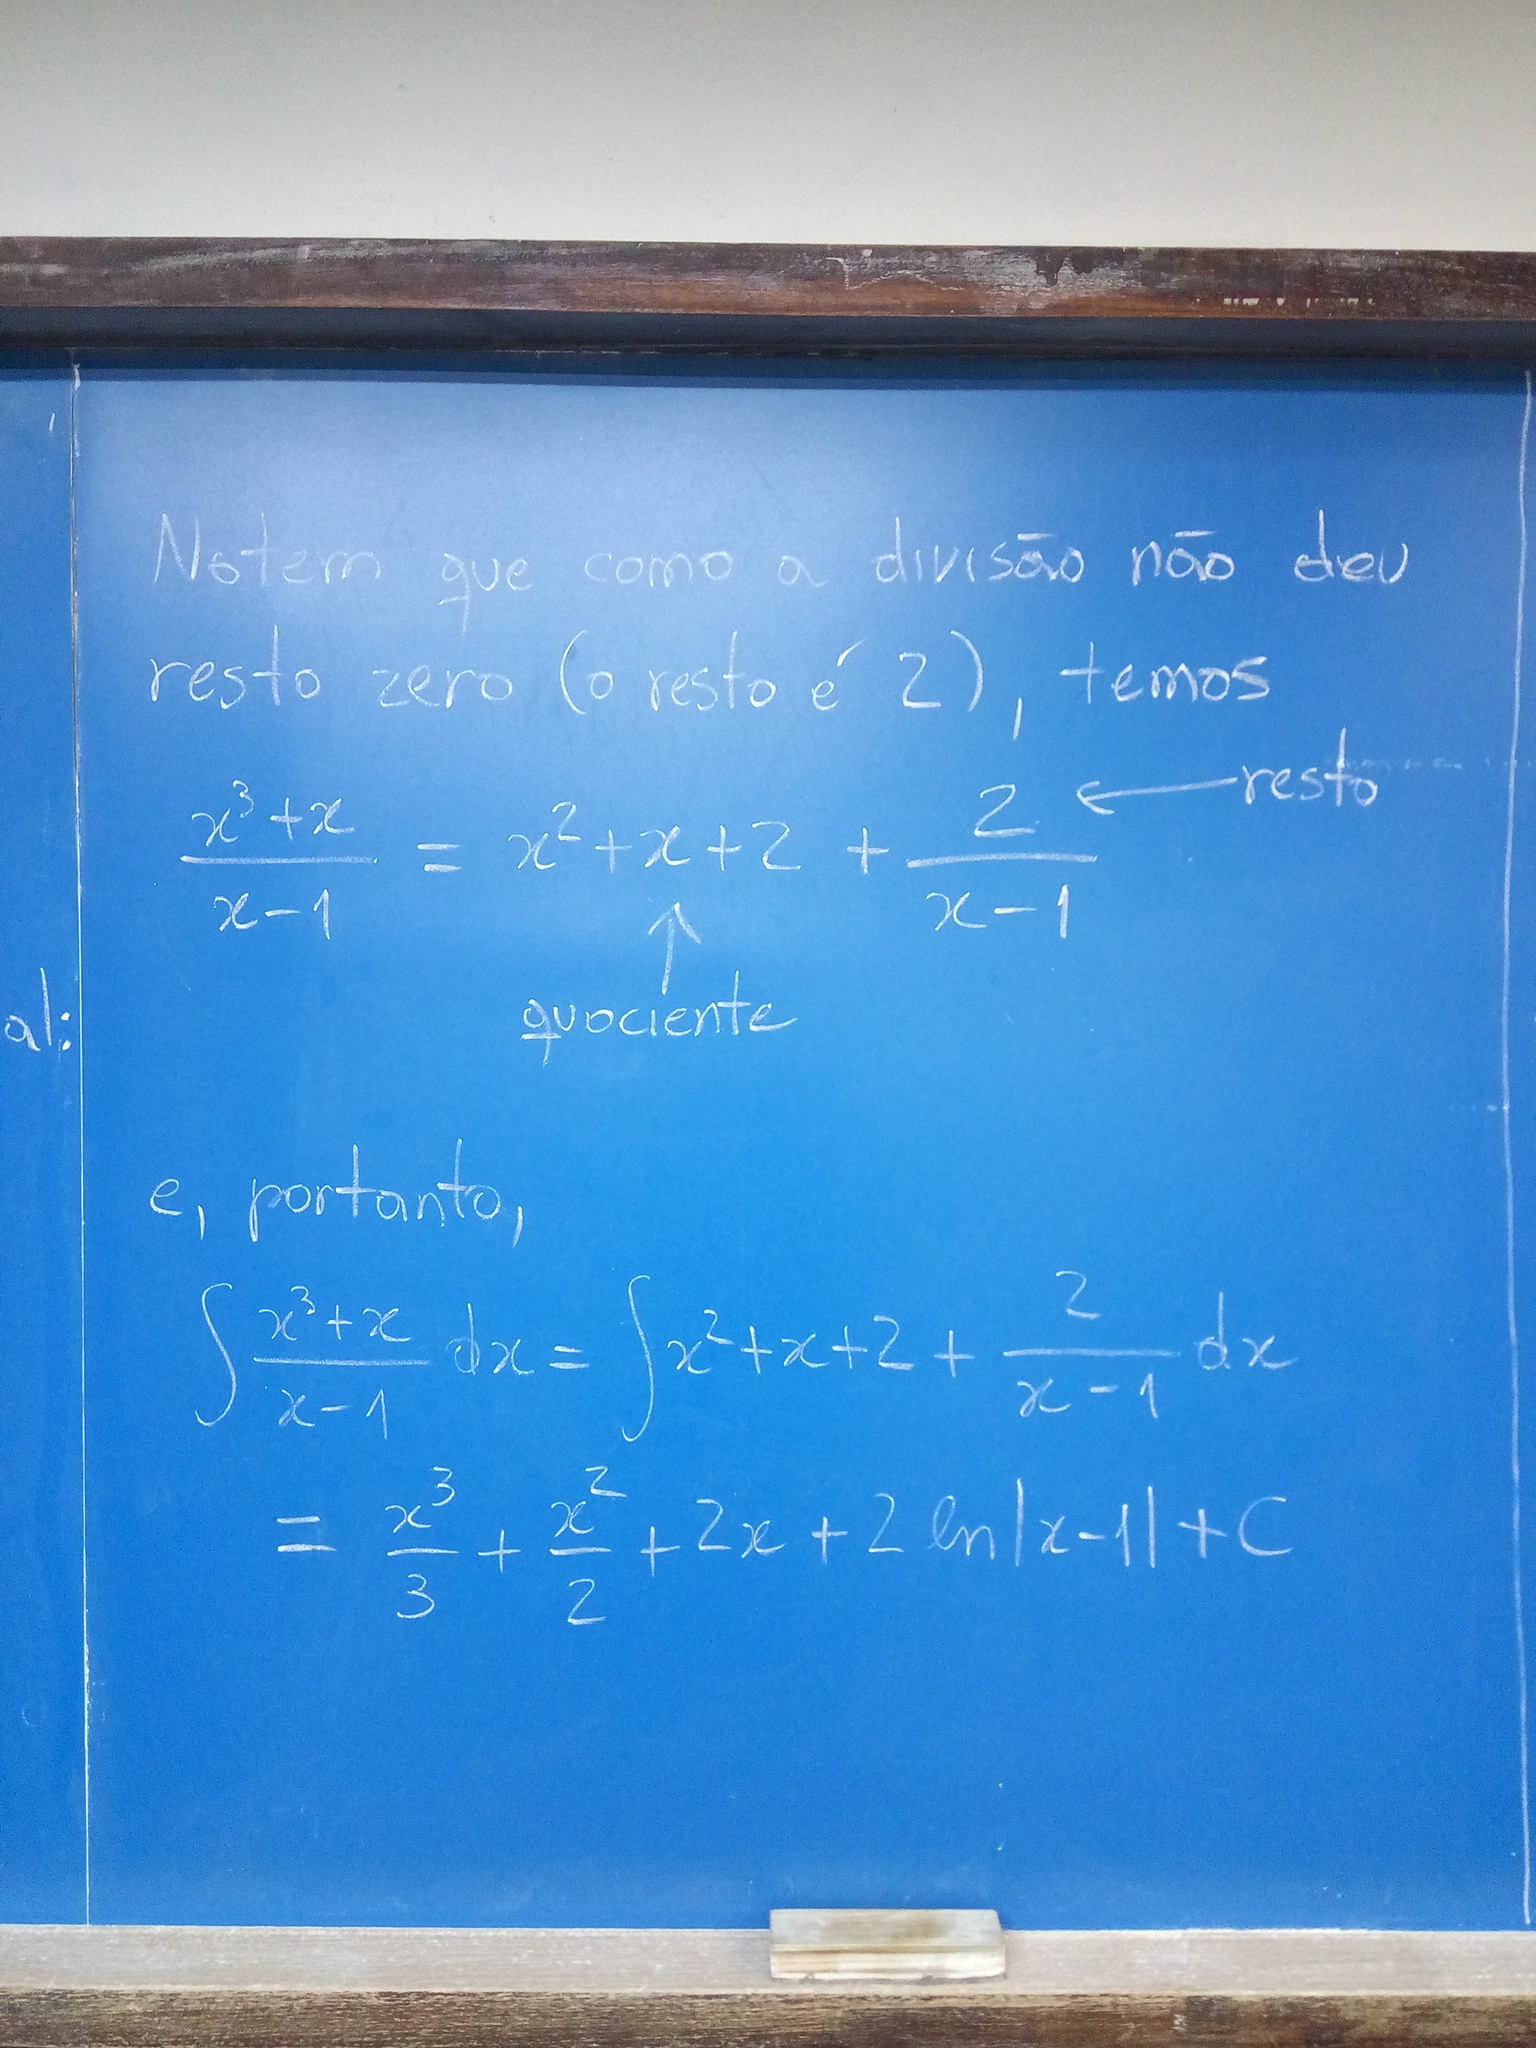 Notem que como a divisão não deu
resto zero (o resto é 2), temos
(x³+x)/(x-1) = x²+x+2 + 2/(x-1) ← resto
↑
quociente
al:
e, portanto,
∫ (x³+x)/(x-1) dx = ∫ x²+x+2 + 2/(x-1) dx
= x³/3 + x²/2 + 2x + 2 ln|x-1| + C